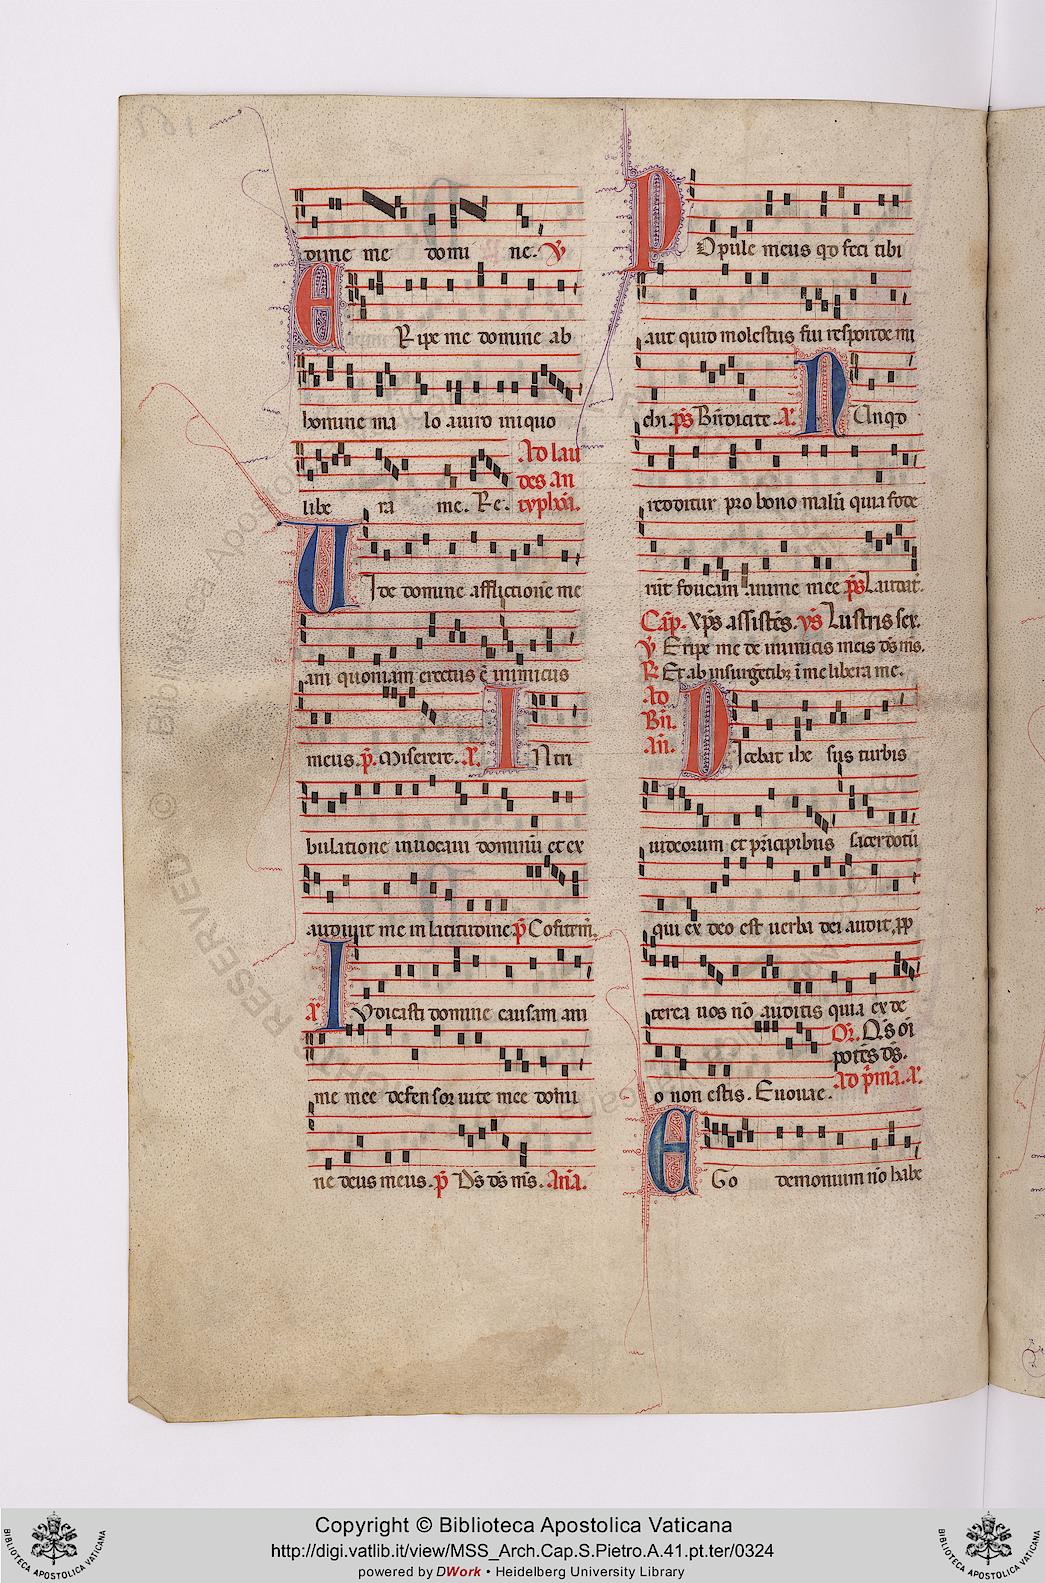 dime me domi ne. V
ERipe me domine ab
homine ma lo a uiro iniquo
libe ra me. Re.
Ad lau
des an
typhoñ.
UIde domine afflictionē me
am quoniam erectus ē inimicus
meus. p̄. Miserere. A. INtri
bulatione inuocaui dominū et ex
audiuit me in latitudine. p̄ Cōfitem̄.
A. IUdicasti domine causam ani
me mee defensor uite mee domi
ne deus meus. p̄ D̄s d̄s m̄s. Añā.
POpule meus qd feci tibi
aut quid molestus fui responde mi
chi. p̄s Bn̄dicite. A. NUnqd
redditur pro bono malū quia fode
rūt foueam anime mee p̄s Laudat̄.
Cap̄. Xp̄s assistēs. ys̄ Lustris sex.
V Eripe me de inimicis meis d̄s m̄s.
R Et ab insurgētibȝ ī me libera me.
Ad
Bn̄.
Añ. DIcebat ihesus turbis
iudeorum et pricipibus sacerdotū
qui ex deo est uerba dei audit, pp
terea uos nō auditis quia ex de
o non estis. Euouae.
Or. O. s oī
potēs d̄s.
Ad p̄mā. A.
EGo demonium nō habe
RIGHTS RESERVED © Biblioteca Apostolica Vaticana
Copyright © Biblioteca Apostolica Vaticana
http://digi.vatlib.it/view/MSS_Arch.Cap.S.Pietro.A.41.pt.ter/0324
powered by DWork • Heidelberg University Library
BIBLIOTECA APOSTOLICA VATICANA
BIBLIOTECA APOSTOLICA VATICANA